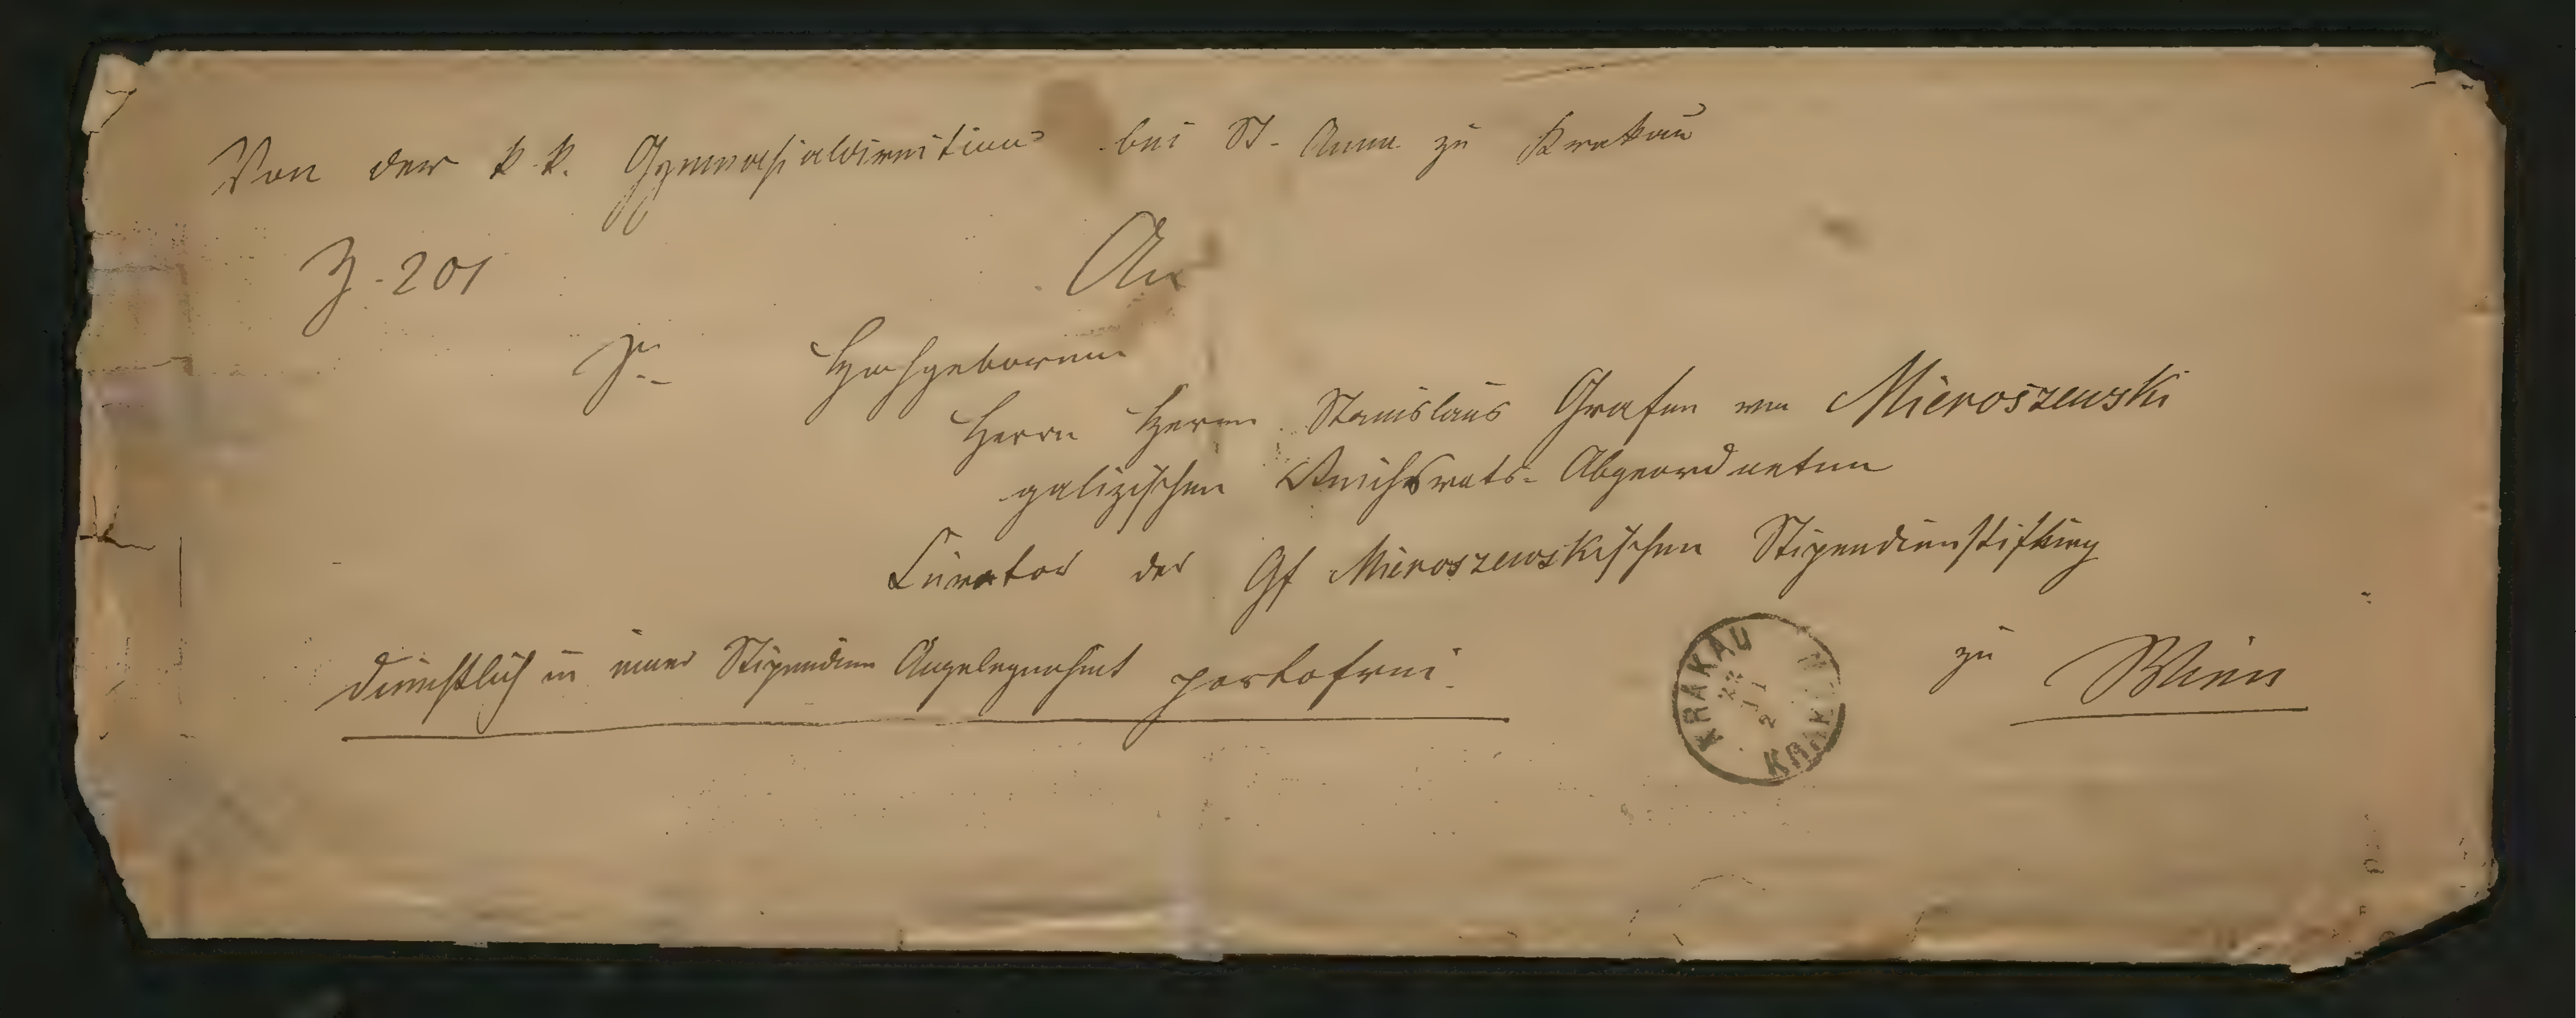 Von der k. k. Gymnasialdirection bei St. Anna zu Krakau
Z. 201
An
Sr. Hochgeboren
Herrn Herrn Stanislaus Grafen von Mieroszewski
galizischen Reichsrats-Abgeordneten
Curator der Gf Mieroszewskischen Stipendienstiftung
zu Wien
dienstlich in einer Stipendien Angelegenheit portofrei.
KRAKAU
22